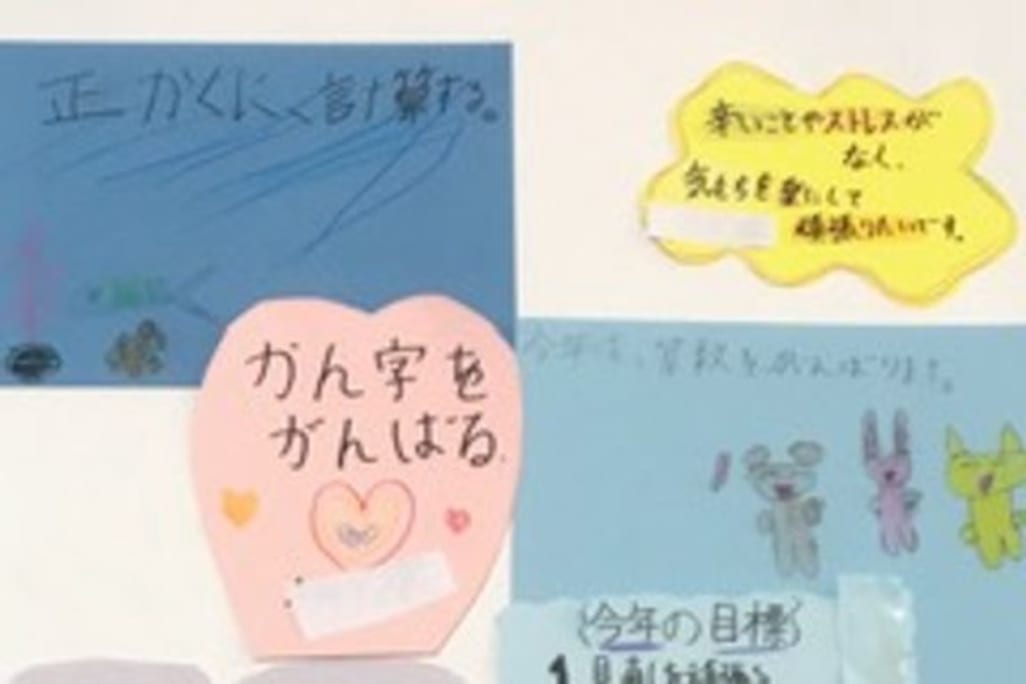 正かくに計算する。
辛いことやストレスが
なく、
気もちを楽にして
頑張りたいです。
かん字を
がんばる.
今年は、算数をがんばります。
(今年の目標)
1 見直しを頑張る